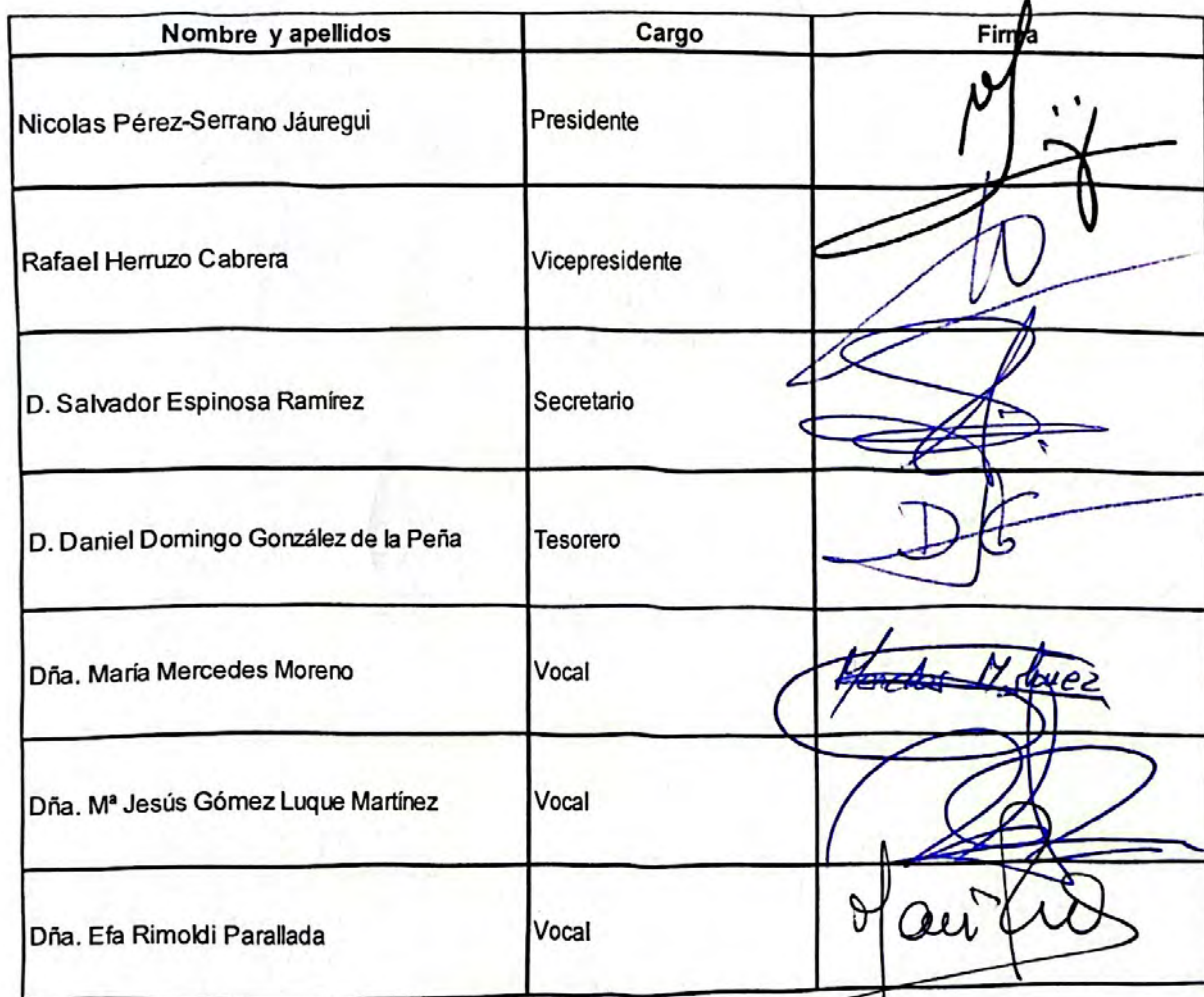 Nombre y apellidos Cargo Firma
Nicolas Pérez-Serrano Jáuregui Presidente
Rafael Herruzo Cabrera Vicepresidente
D. Salvador Espinosa Ramírez Secretario
D. Daniel Domingo González de la Peña Tesorero DG
Dña. María Mercedes Moreno Vocal
Dña. Mª Jesús Gómez Luque Martínez Vocal
Dña. Efa Rimoldi Parallada Vocal